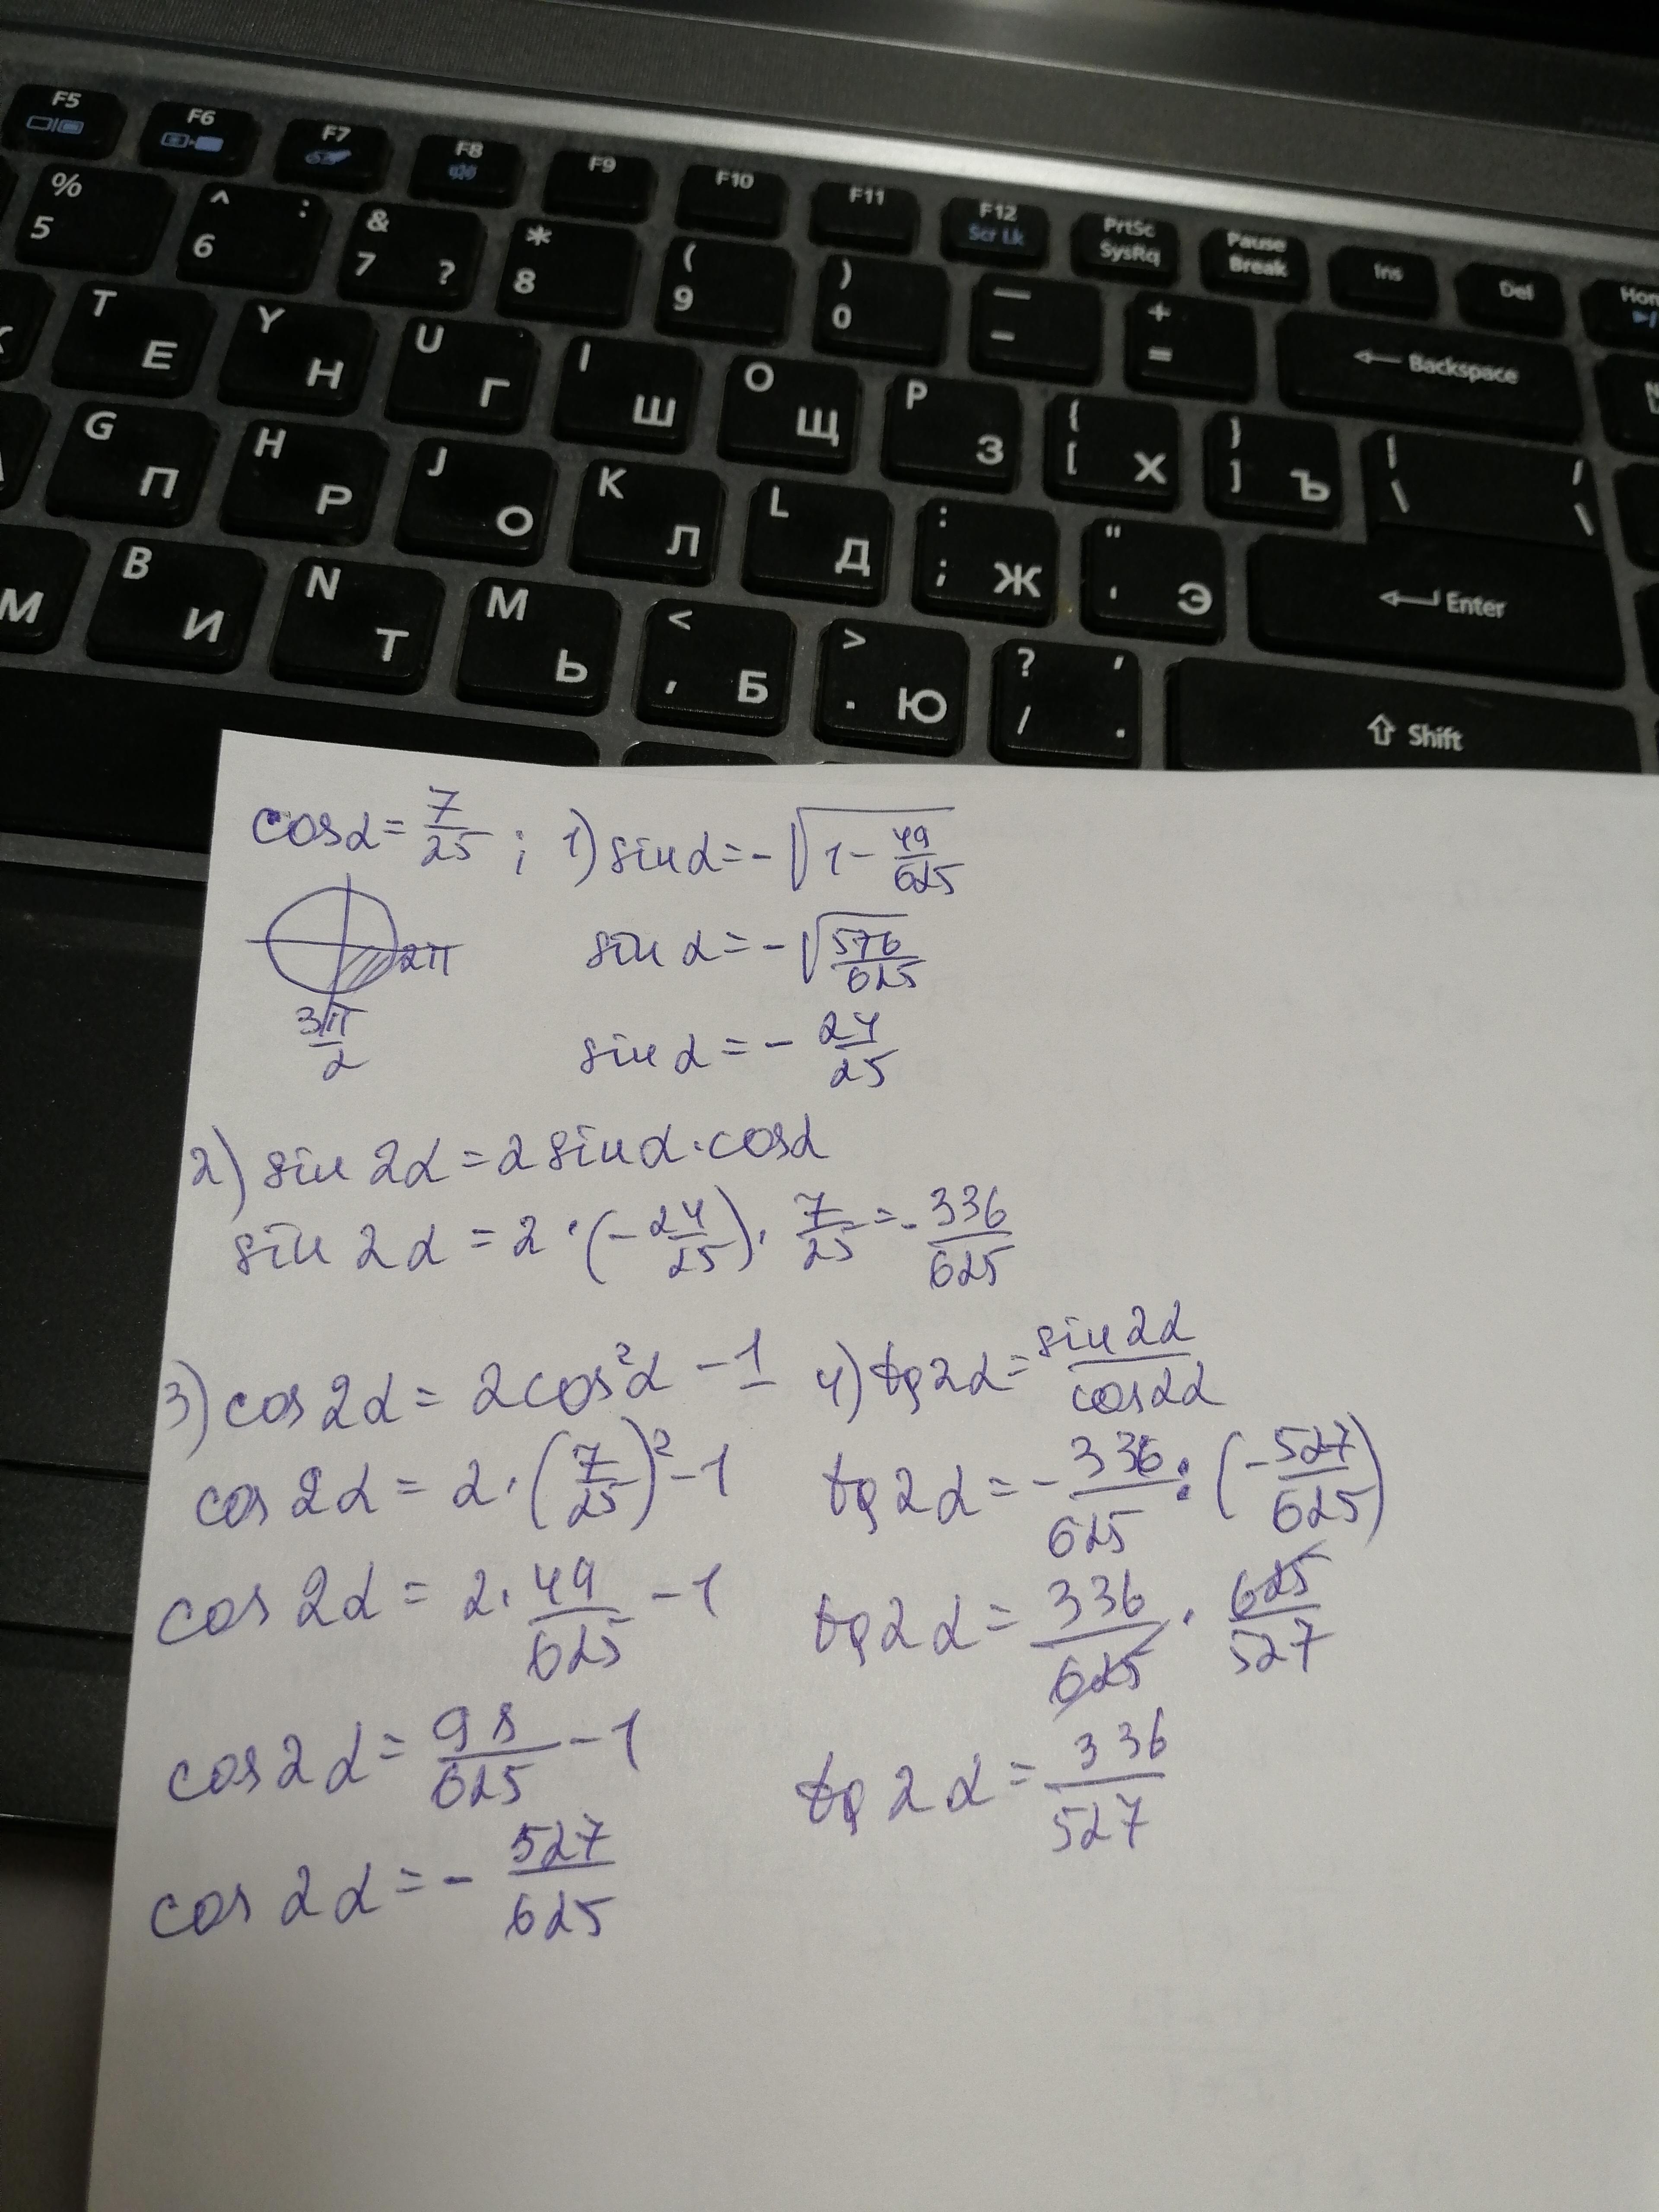 F5 F6 F7 F8 F9 F10 F11 F12 PrtSc Pause Ins Del
Scr Lk SysRq Break
% ^ : & * ( ) — +
5 6 7 ? 8 9 0 - =
← Backspace
T Y U I O P { }
Е Н Г Ш Щ З [ Х ] Ъ | / \ \
G H J K L : "
П Р О Л Д ; Ж ' Э
← Enter
B N M < > ? ,
М И Т Ь , Б . Ю / .
⇧ Shift
cosα = 7/25 ; 1) sinα = -√(1 - 49/625)
2π
sin α = -√(576/625)
3π/2
sin α = - 24/25
2) sin 2α = 2 sinα · cosα
sin 2α = 2 · (-24/25) · 7/25 = - 336/625
3) cos 2α = 2cos²α - 1
cos 2α = 2 · (7/25)² - 1
cos 2α = 2 · 49/625 - 1
cos 2α = 98/625 - 1
cos 2α = - 527/625
4) tg 2α = sin 2α/cos 2α
tg 2α = - 336/625 : (- 527/625)
tg 2α = 336/625 · 625/527
tg 2α = 336/527